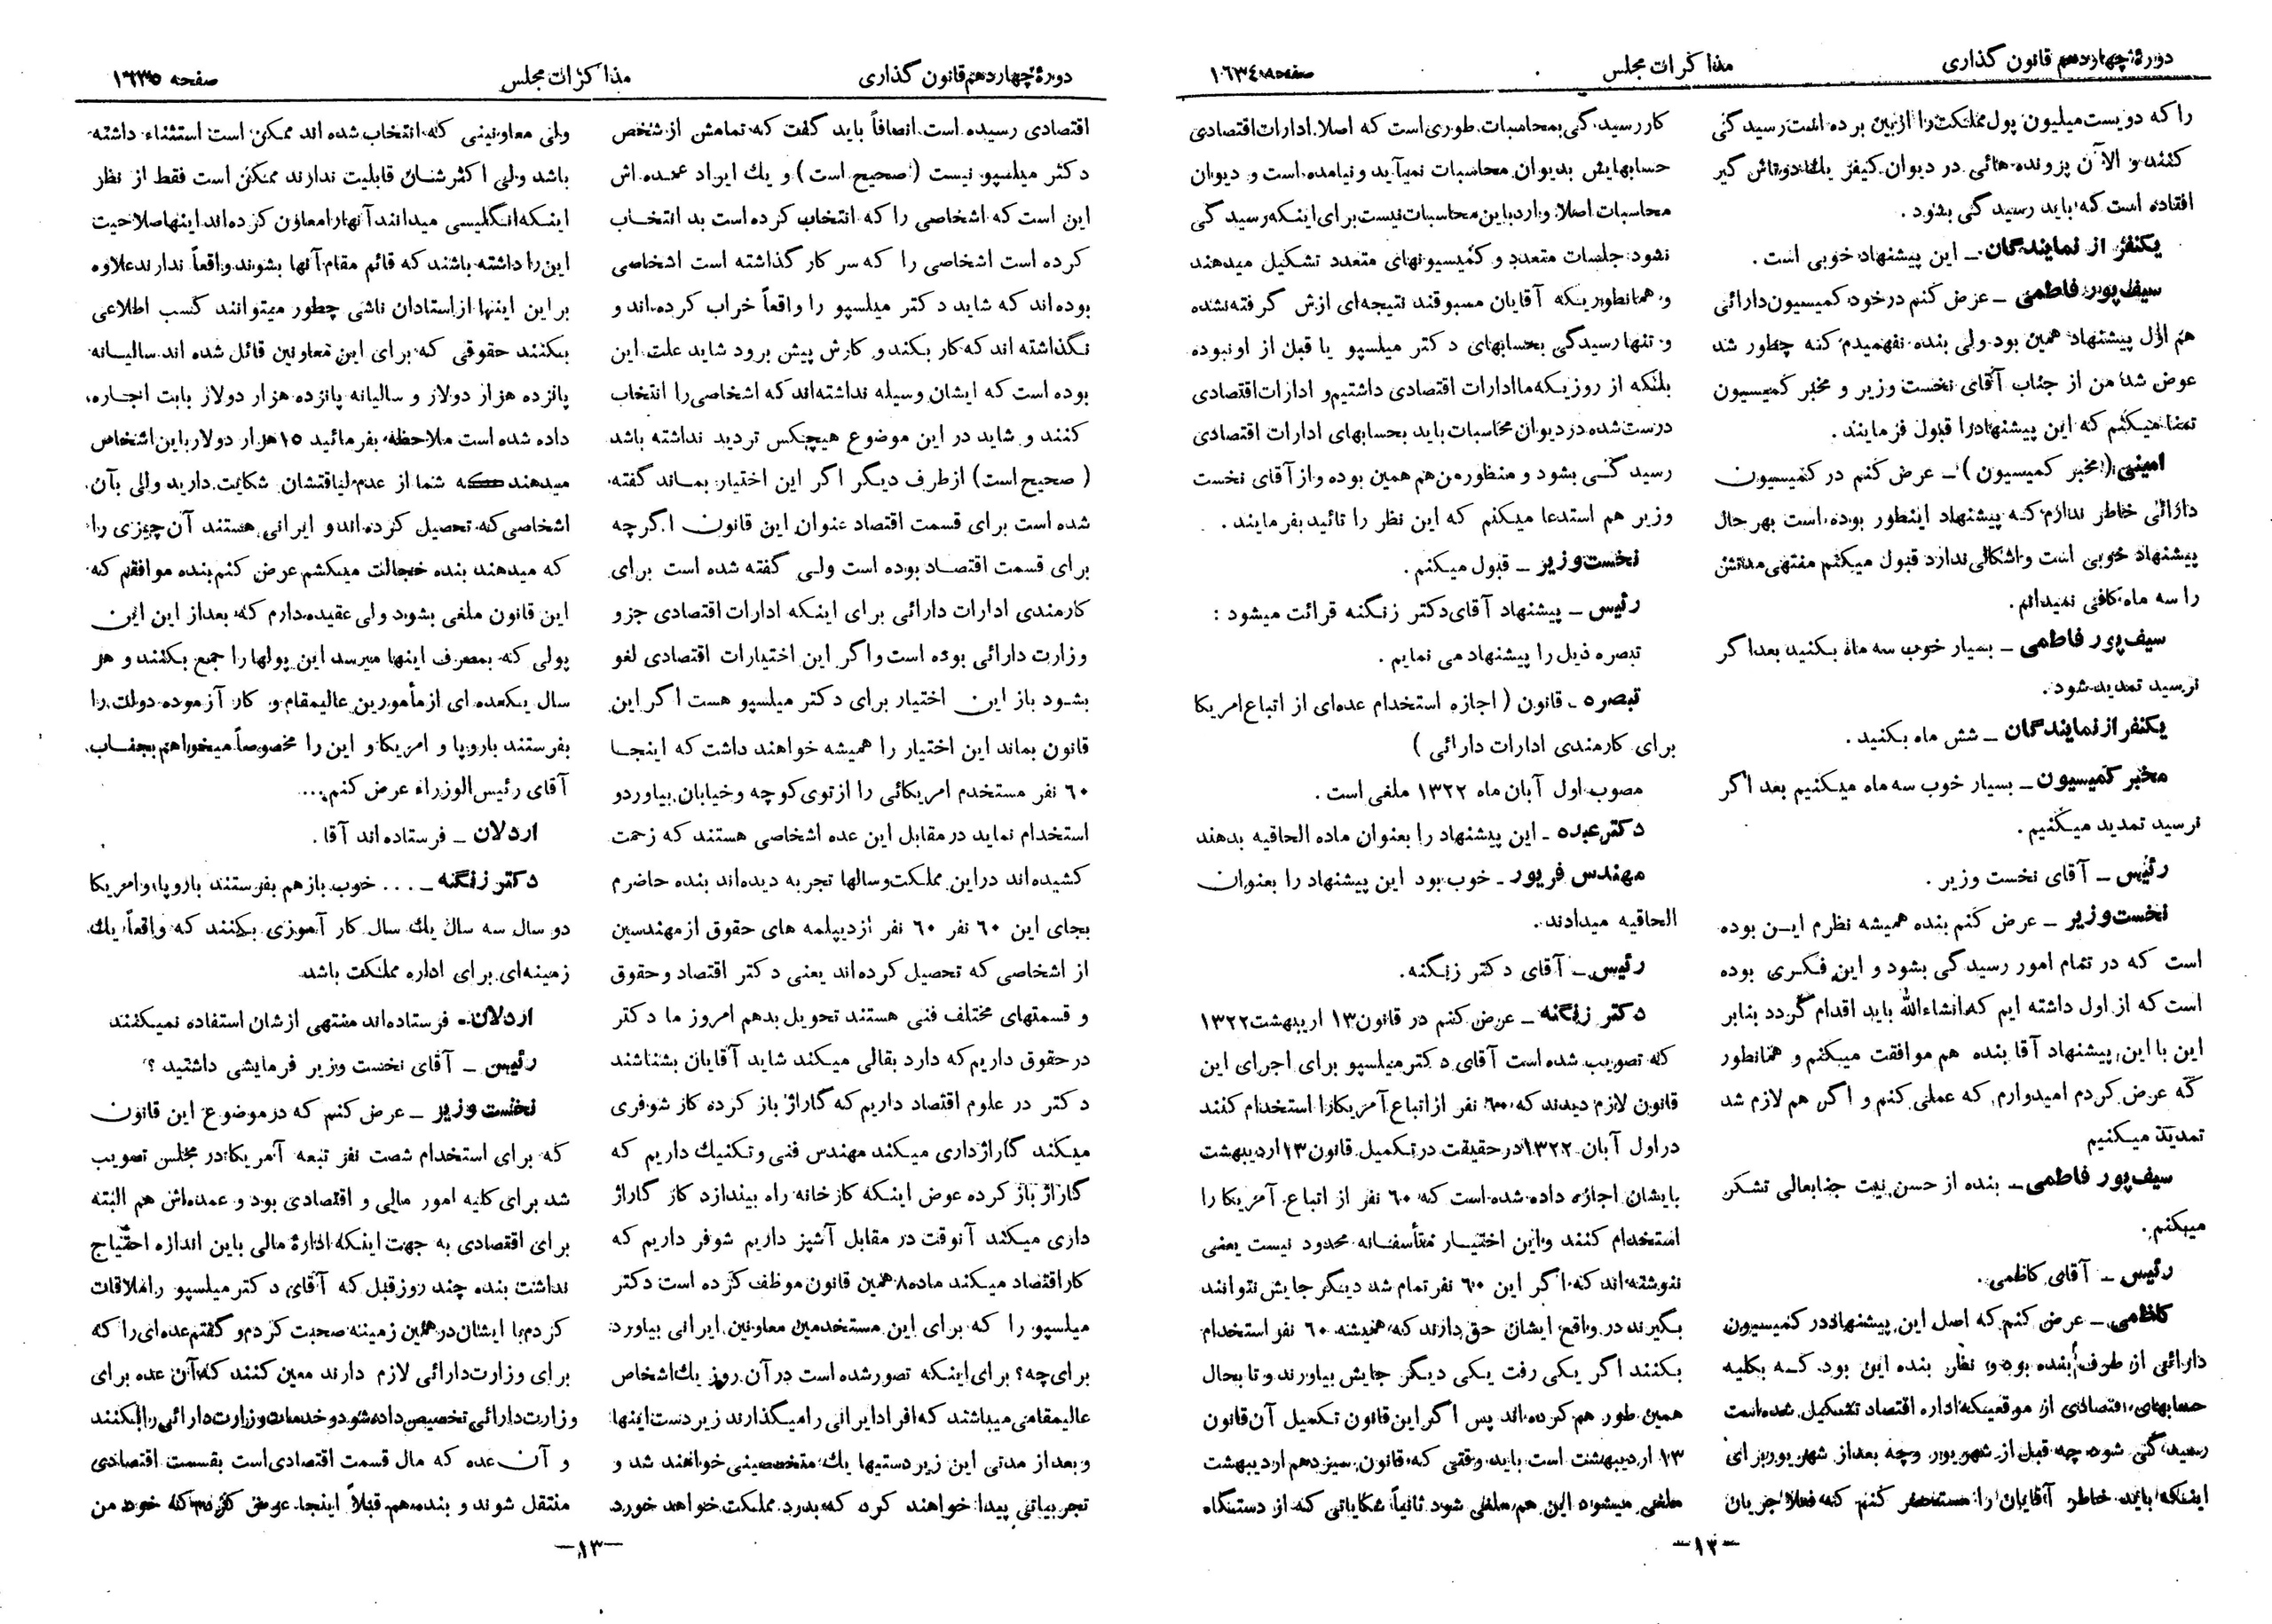 دورهٔ چهاردهم قانون گذاری
مذاکرات مجلس
صفحه ۱۶۳۴
را که دویست میلیون پول مملکت را از بین برده است رسیدگی
کنند و الآن پرونده هائی در دیوان کیفر یك دو تاش گیر
افتاده است که باید رسیدگی بشود .
یکنفر از نمایندگان ــ این پیشنهاد خوبی است .
سیف پور فاطمی ــ عرض کنم در خود کمیسیون دارائی
هم اول پیشنهاد همین بود ولی بنده نفهمیدم که چطور شد
عوض شد من از جناب آقای نخست وزیر و مخبر کمیسیون
تمنا میکنم که این پیشنهاد را قبول فرمایند .
امینی (مخبر کمیسیون) ــ عرض کنم در کمیسیون
دارائی خاطر ندارم که پیشنهاد اینطور بوده است بهر حال
پیشنهاد خوبی است و اشکالی ندارد قبول میکنم منتهی مدتش
را سه ماه کافی نمیدانم .
سیف پور فاطمی ــ بسیار خوب سه ماه بکنید بعد اگر
نرسید تمدید شود .
یکنفر از نمایندگان ــ شش ماه بکنید .
مخبر کمیسیون ــ بسیار خوب سه ماه میکنیم بعد اگر
نرسید تمدید میکنیم .
رئیس ــ آقای نخست وزیر .
نخست وزیر ــ عرض کنم بنده همیشه نظرم این بوده
است که در تمام امور رسیدگی بشود و این فکری بوده
است که از اول داشته ایم که انشاءالله باید اقدام گردد بنابر
این با این پیشنهاد آقا بنده هم موافقت میکنم و همانطور
که عرض کردم امیدوارم که عملی کنم و اگر هم لازم شد
تمدید میکنیم
سیف پور فاطمی ــ بنده از حسن نیت جنابعالی تشکر
میکنم .
رئیس ــ آقای کاظمی .
کاظمی ــ عرض کنم که اصل این پیشنهاد در کمیسیون
دارائی از طرف بنده بود و نظر بنده این بود که بکلیه
حسابهای اقتصادی از موقعیکه اداره اقتصاد تشکیل شده است
رسیدگی شود چه قبل از شهریور وچه بعد از شهریور برای
اینکه باید خاطر آقایان را مستحضر کنم که فعلا جریان
کار رسیدگی بمحاسبات طوری است که اصلا ادارات اقتصادی
حسابهایش بدیوان محاسبات نمیآید و نیامده است و دیوان
محاسبات اصلا وارد باین محاسبات نیست برای اینکه رسیدگی
نشود جلسات متعدد و کمیسیونهای متعدد تشکیل میدهند
و همانطوریکه آقایان مسبوقند نتیجه‌ای ازش گرفته نشده
و تنها رسیدگی بحسابهای دکتر میلسپو یا قبل از او نبوده
بلکه از روزیکه ما ادارات اقتصادی داشتیم و ادارات اقتصادی
درست شده در دیوان محاسبات باید بحسابهای ادارات اقتصادی
رسیدگی بشود و منظور من هم همین بوده و از آقای نخست
وزیر هم استدعا میکنم که این نظر را تائید بفرمایند .
نخست وزیر ــ قبول میکنم .
رئیس ــ پیشنهاد آقای دکتر زنگنه قرائت میشود :
تبصره ذیل را پیشنهاد می نمایم .
تبصره ـ قانون ( اجازه استخدام عده‌ای از اتباع امریکا
برای کارمندی ادارات دارائی )
مصوب اول آبان ماه ۱۳۲۲ ملغی است .
دکتر عبده ـ این پیشنهاد را بعنوان ماده الحاقیه بدهند
مهندس فریور ـ خوب بود این پیشنهاد را بعنوان
الحاقیه میدادند .
رئیس ــ آقای دکتر زنگنه .
دکتر زنگنه ــ عرض کنم در قانون ۱۳ اریبهشت ۱۳۲۲
که تصویب شده است آقای دکتر میلسپو برای اجرای این
قانون لازم دیدند که ۶۰ نفر از اتباع آمریکا را استخدام کنند
در اول آبان ۱۳۲۲ در حقیقت در تکمیل قانون ۱۳ اردیبهشت
بایشان اجازه داده شده است که ۶۰ نفر از اتباع آمریکا را
استخدام کنند و این اختیار متأسفانه محدود نیست یعنی
ننوشته اند که اگر این ۶۰ نفر تمام شد دیگر جایش نتوانند
بگیرند در واقع ایشان حق دارند که همیشه ۶۰ نفر استخدام
بکنند اگر یکی رفت یکی دیگر جایش بیاورند و تا بحال
همین طور هم کرده اند پس اگر این قانون تکمیل آن قانون
۱۳ اردیبهشت است باید وقتی که قانون سیزدهم اردیبهشت
ملغی میشود این هم ملغی شود ثانیاً شکایاتی که از دستگاه
ـ۱۲ـ
دورهٔ چهاردهم قانون گذاری
مذاکرات مجلس
صفحه ۱۶۳۵
اقتصادی رسیده است انصافاً باید گفت که تمامش از شخص
دکتر میلسپو نیست (صحیح است) و یك ایراد عمده اش
این است که اشخاصی را که انتخاب کرده است بد انتخاب
کرده است اشخاصی را که سر کار گذاشته است اشخاصی
بوده اند که شاید دکتر میلسپو را واقعاً خراب کرده اند و
نگذاشته اند که کار بکند و کارش پیش برود شاید علت این
بوده است که ایشان وسیله نداشته‌اند که اشخاصی را انتخاب
کنند و شاید در این موضوع هیچکس تردید نداشته باشد
( صحیح است) از طرف دیگر اگر این اختیار بماند گفته
شده است برای قسمت اقتصاد عنوان این قانون اگرچه
برای قسمت اقتصاد بوده است ولی گفته شده است برای
کارمندی ادارات دارائی برای اینکه ادارات اقتصادی جزو
وزارت دارائی بوده است و اگر این اختیارات اقتصادی لغو
بشود باز این اختیار برای دکتر میلسپو هست اگر این
قانون بماند این اختیار را همیشه خواهند داشت که اینجا
۶۰ نفر مستخدم امریکائی را از توی کوچه و خیابان بیاورد و
استخدام نماید در مقابل این عده اشخاصی هستند که زحمت
کشیده اند در این مملکت وسالها تجربه دیده‌اند بنده حاضرم
بجای این ۶۰ نفر ۶۰ نفر از دیپلمه های حقوق از مهندسین
از اشخاصی که تحصیل کرده‌اند یعنی دکتر اقتصاد و حقوق
و قسمتهای مختلف فنی هستند تحویل بدهم امروز ما دکتر
در حقوق داریم که دارد بقالی میکند شاید آقایان بشناشند
دکتر در علوم اقتصاد داریم که گاراژ باز کرده کار شوفری
میکند گاراژ داری میکند مهندس فنی و تکنیك داریم که
گاراژ باز کرده عوض اینکه کارخانه راه بیندازد کار گاراژ
داری میکند آنوقت در مقابل آشپز داریم شوفر داریم که
کار اقتصاد میکند ماده ۸ همین قانون موظف کرده است دکتر
میلسپو را که برای این مستخدمین معاونین ایرانی بیاورد
برای چه؟ برای اینکه تصور شده است در آن روز یك اشخاص
عالیمقامی میباشند که افراد ایرانی را میگذارند زیر دست اینها
و بعد از مدتی این زیر دستیها یك متخصصینی خواهند شد و
تجربیاتی پیدا خواهند کرد که بدرد مملکت خواهد خورد
ولی معاونینی که انتخاب شده اند ممکن است استثناء داشته
باشد ولی اکثرشان قابلیت ندارند ممکن است فقط از نظر
اینکه انگلیسی میدانند آنها را معاون کرده‌اند اینها صلاحیت
این را داشته باشند که قائم مقام آنها بشوند واقعاً ندارند علاوه
بر این اینها از استادان ناشی چطور میتوانند کسب اطلاعی
بکنند حقوقی که برای این معاونین قائل شده اند سالیانه
پانزده هزار دولار و سالیانه پانزده هزار دولار بابت اجاره
داده شده است ملاحظه بفرمائید ۱۵ هزار دولار باین اشخاص
میدهند که شما از عدم لیاقتشان شکایت دارید ولی بآن
اشخاصی که تحصیل کرده‌اند و ایرانی هستند آن چیزی را
که میدهند بنده خجالت میکشم عرض کنم بنده موافقم که
این قانون ملغی بشود ولی عقیده دارم که بعد از این این
پولی که بمصرف اینها میرسد این پولها را جمع بکنند و هر
سال یکعده ای از مأمورین عالیمقام و کار آزموده دولت را
بفرستند باروپا و امریکا و این را مخصوصاً میخواهم بجناب
آقای رئیس الوزراء عرض کنم ...
اردلان ــ فرستاده اند آقا .
دکتر زنگنه ــ ... خوب باز هم بفرستند باروپا و امریکا
دو سال سه سال یك سال کار آموزی بکنند که واقعاً یك
زمینه‌ای برای اداره مملکت باشد
اردلان ـ فرستاده‌اند منتهی ازشان استفاده نمیکنند
رئیس ــ آقای نخست وزیر فرمایشی داشتید ؟
نخست وزیر ــ عرض کنم که در موضوع این قانون
که برای استخدام شصت نفر تبعه آمریکا در مجلس تصویب
شد برای کلیه امور مالی و اقتصادی بود و عمده‌اش هم البته
برای اقتصادی به جهت اینکه ادارهٔ مالی باین اندازه احتیاج
نداشت بنده چند روز قبل که آقای دکتر میلسپو را ملاقات
کردم با ایشان در همین زمینه صحبت کردم و گفتم عده‌ای را که
برای وزارت دارائی لازم دارند معین کنند که آن عده برای
وزارت دارائی تخصیص داده شود و خدمات وزارت دارائی را بکنند
و آن عده که مال قسمت اقتصادی است بقسمت اقتصادی
منتقل شوند و بنده هم قبلاً اینجا عرض کردم که خود من
ـ۱۳ـ